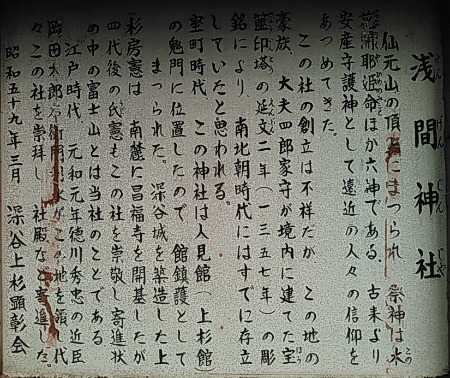 浅間神社
せんげんじんじゃ
仙元山の頂にまつられ 祭神は木
花咲耶姫命ほか六神である。古来より
安産守護神として遠近の人々の信仰を
あつめてきた。
この社の創立は不祥だが この地の
豪族 大夫四郎家守が境内に建てた宝
篋印塔の延文二年(一三五七年)の彫
銘により、南北朝時代にはすでに存立
していたと思われる。
室町時代、この神社は人見館(上杉館)
の鬼門に位置したので、館鎮護として
まつられた。深谷城を築造した上
杉房憲は 南麓に昌福寺を開基したが
四代後の氏憲もこの社を崇敬し寄進状
の中の富士山とは当社のことである
江戸時代 元和元年徳川秀忠の近臣
岡田太郎右衛門 がこの地を領し代
々この社を崇拝し 社殿など寄進した。
昭和五十九年三月 深谷上杉顕彰会